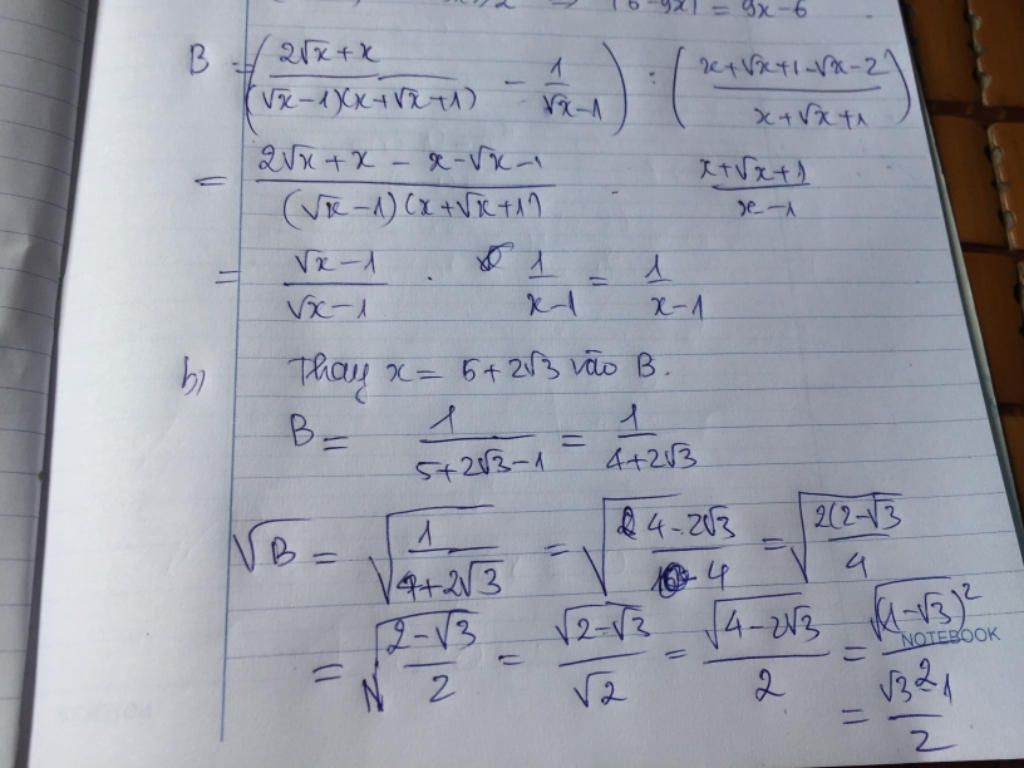 ⇒ |6-9x| = 9x-6
B = ( (2√x + x)/((√x-1)(x+√x+1)) - 1/(√x-1) ) : ( (x+√x+1-√x-2)/(x+√x+1) )
= (2√x + x - x-√x-1)/((√x-1)(x+√x+1)) · (x+√x+1)/(x-1)
= (√x-1)/(√x-1) · 1/(x-1) = 1/(x-1)
b) Thay x = 5+2√3 vào B.
B = 1/(5+2√3-1) = 1/(4+2√3)
√B = √(1/(4+2√3)) = √((4-2√3)/4) = √(2(2-√3/4)
= √((2-√3)/2) = √(2-√3)/√2 = √(4-2√3)/2 = √(1-√3)²/2
NOTEBOOK
= (√3-1)/2